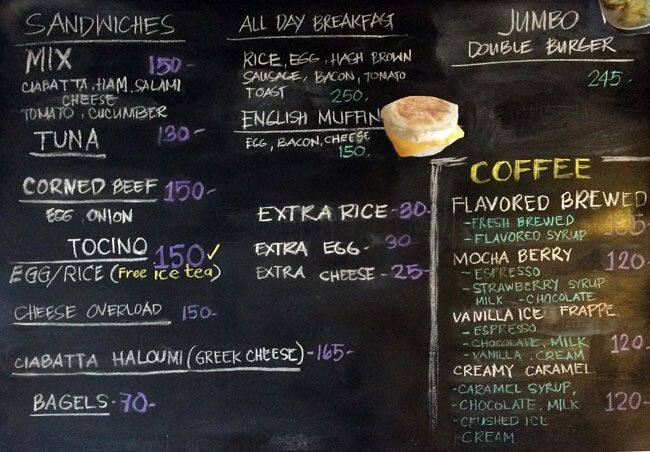 SANDWICHES
MIX 150-
CIABATTA, HAM, SALAMI
CHEESE
TOMATO, CUCUMBER
TUNA 130-
CORNED BEEF 150-
EGG, ONION
TOCINO 150✓
EGG/RICE (Free ice tea)
CHEESE OVERLOAD 150-
CIABATTA HALOUMI (GREEK CHEESE) -165-
BAGELS - 70-
ALL DAY BREAKFAST
RICE, EGG, HASH BROWN
SAUSAGE, BACON, TOMATO
TOAST 250.
ENGLISH MUFFIN
EGG, BACON, CHEESE
150.
EXTRA RICE -30-
EXTRA EGG - 30
EXTRA CHEESE -25-
JUMBO
DOUBLE BURGER
245.
COFFEE
FLAVORED BREWED
-FRESH BREWED
-FLAVORED SYRUP
MOCHA BERRY 120-
-ESPRESSO
-STRAWBERRY SYRUP
MILK -CHOCOLATE
VANILLA ICE FRAPPE
-ESPRESSO
-CHOCOLATE, MILK 120-
-VANILLA . CREAM
CREAMY CARAMEL
-CARAMEL SYRUP,
-CHOCOLATE, MILK 120-
-CRUSHED ICE
-CREAM